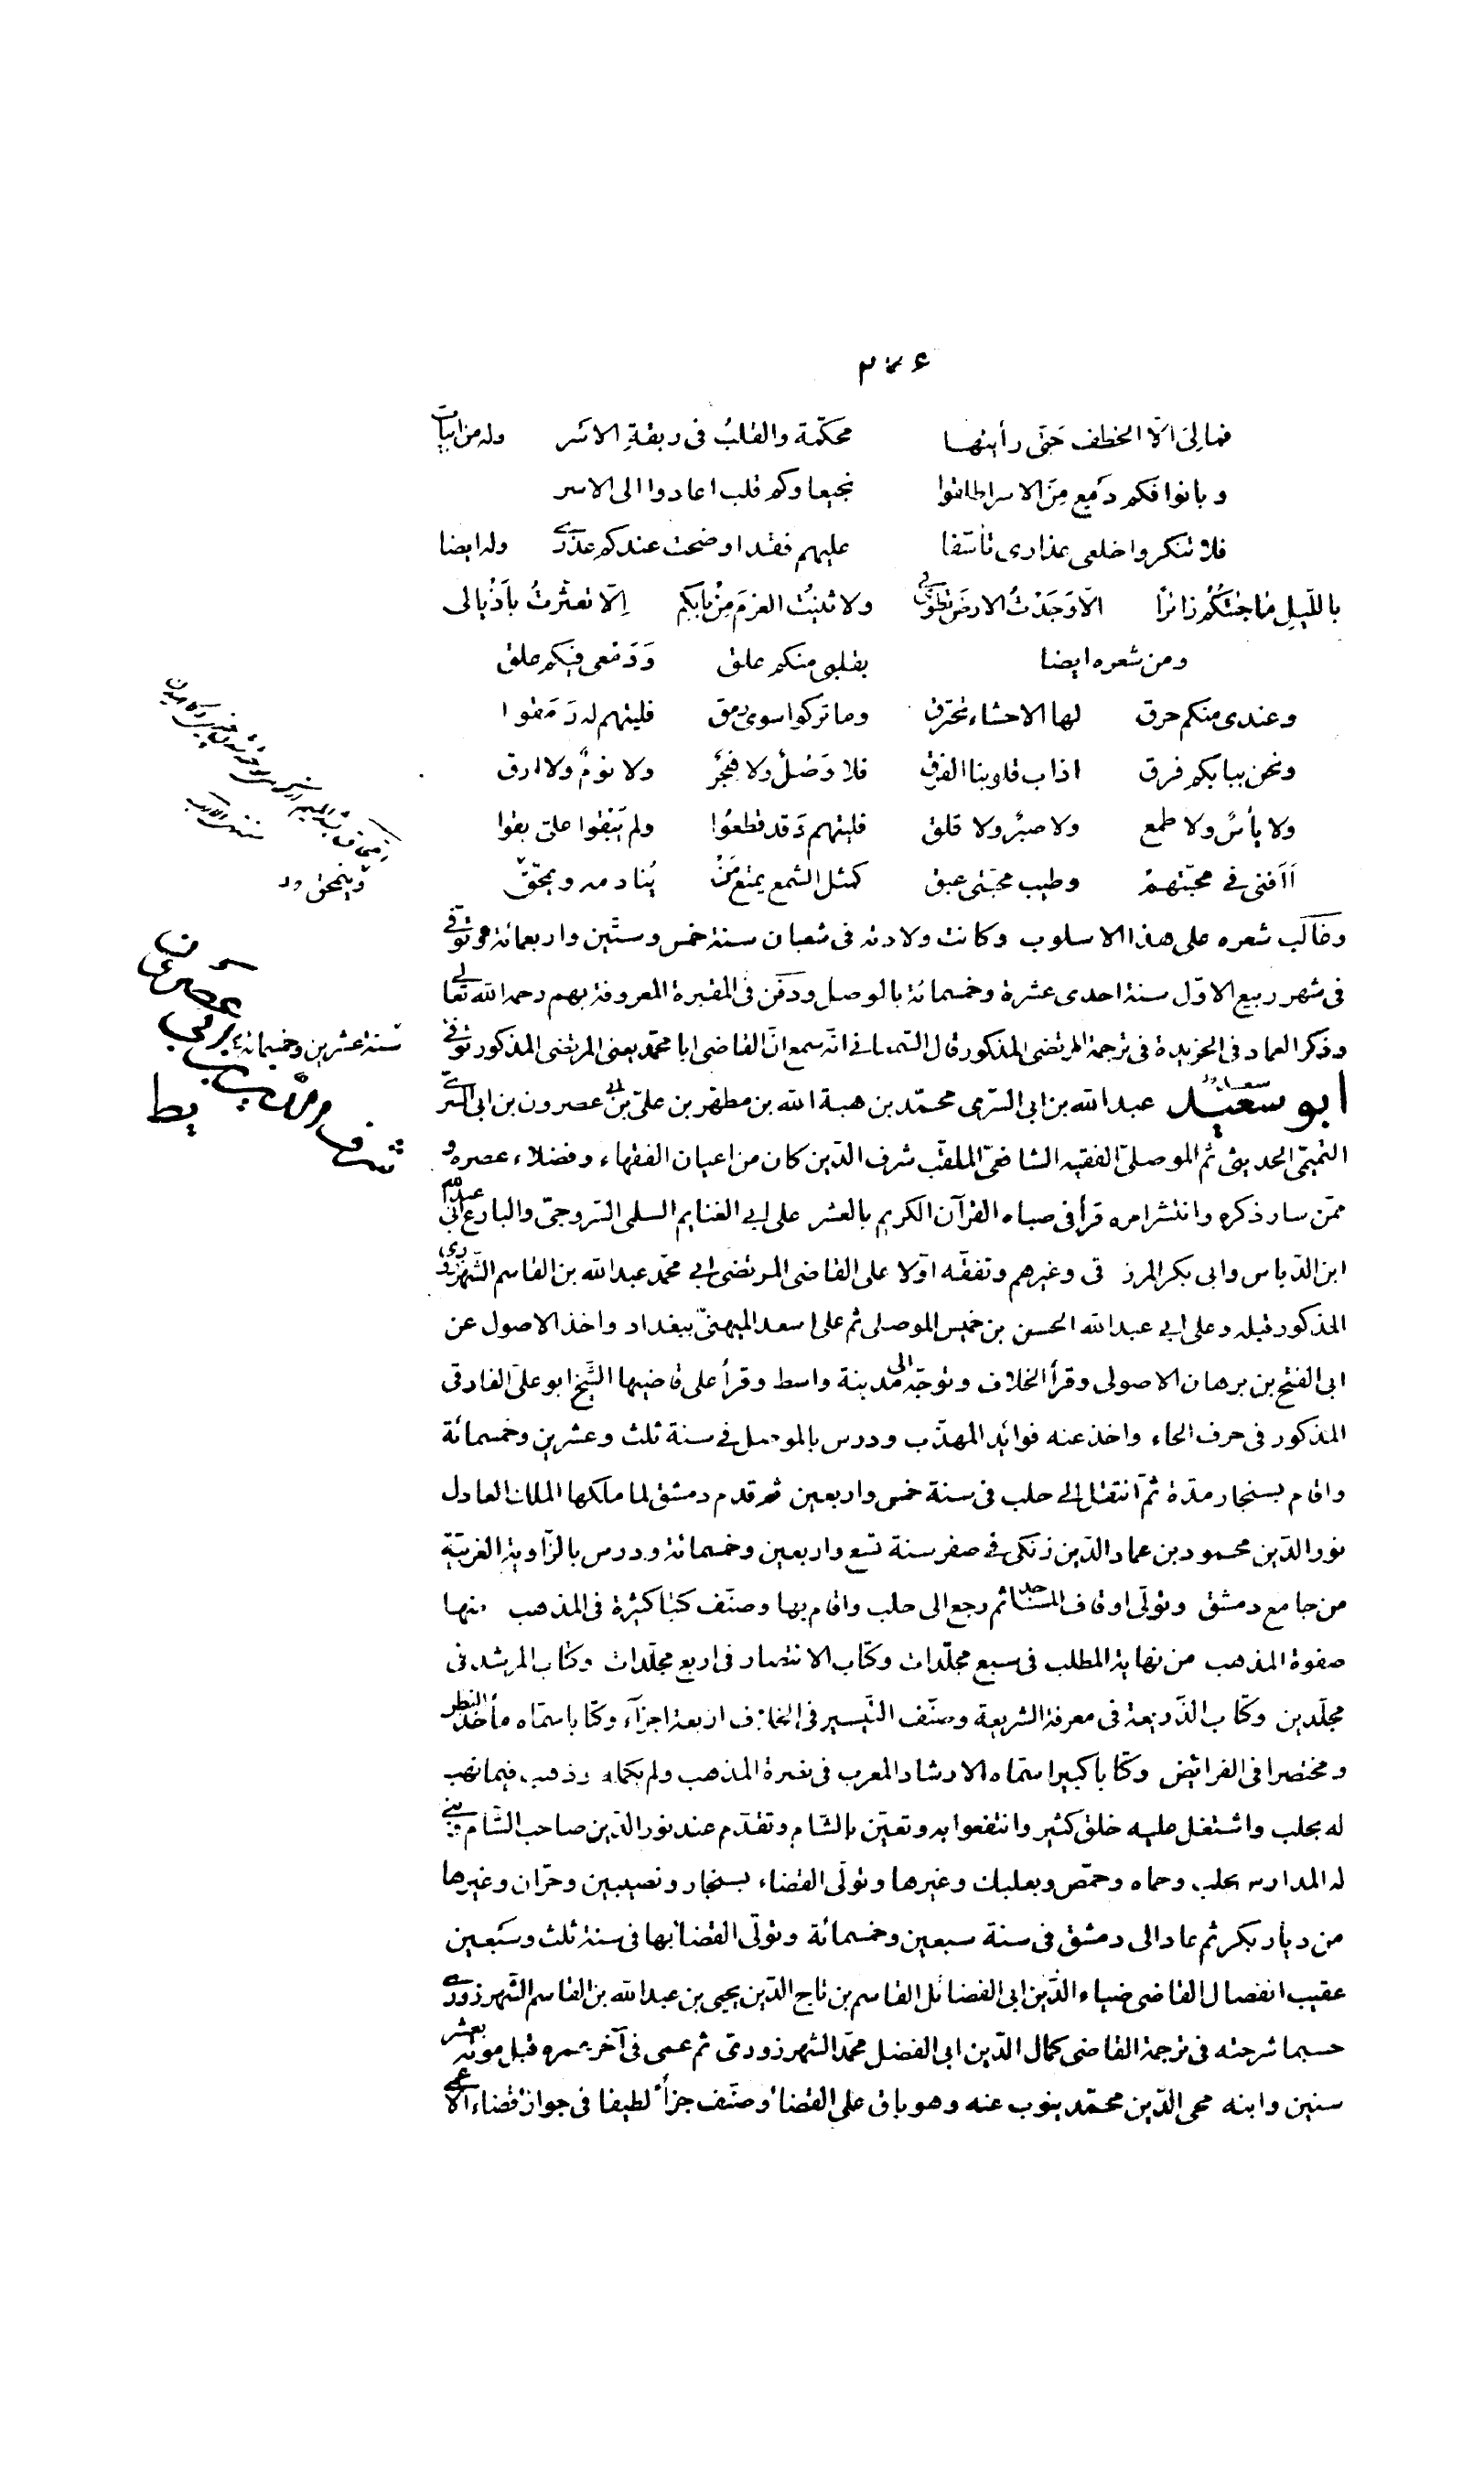 ٢٧٤
فمالی الّا الخطف حَتّی رأیتها محکّمة والقلبُ فی ربقةِ الاسَر وله من ابیات
و بانوا فکم دَمع مِنَ الاسر اطلقوا نجیعا وکم قلب اعادوا الی الاسر
فلا تنکروا خلعی عذاری تأسّفا علیهم فقد اوضحت عندکم عذری وله ایضا
باللّیلِ ماجئتکُم زائرًا الّا وَجَدْتُ الارضَ تطوٰی لی ولا ثنیتُ العزمَ مِنْ بابکم اِلّا تعثّرتُ باَذْیالی
ومن شعره ایضا بقلبی منکم علق وَدَمعی فیکم علق
وعندی منکم حرق لها الاحشاء تحترق وما ترکوا سوی رمق فلیتهم له رَمَقوا
ونحن ببابکم فرق اذاب قلوبنا الفرق فلا وَصْلٌ ولا هَجْرٌ ولا نومٌ ولا ارق
ولا یأسٌ ولا طمع ولا صبرٌ ولا قلق فلیتهم وَقد قطعُوا ولم یُبْقوا علیّ بقوا
اَاَفنی فی محبّتهمْ وطیب محبّتی عبق کمثل الشّمع یمتع مَنْ یُنادمه ویمحّقُ
وغالب شعره علی هذا الاسلوب وکانت ولادته فی شعبان سنة خمس وستّین واربعمائة وتوفّی
فی شهر ربیع الاوّل سنة احدی عشرة وخمسمائة بالموصل ودفن فی المقبرة المعروفة بهم رحمه الله تعالی
وذکر العماد فی الخریدة فی ترجمة المرتضی المذکور قال السّمعانی انّه سمع انّ القاضی ابا محمّد یعنی المرتضی المذکور توفّی
سنة عشرین وخمسمائة
ابو سعید عبدالله بن ابی السّری محمّد بن هبة الله بن مطهّر بن علیّ بن ابی عصرون بن ابی السّری
التّمیمّی الحدیثی ثم الموصلیّ الفقیه الشافعیّ الملقّب شرف الدّین کان من اعیان الفقهاء وفضلاء عصره و
ممّن سار ذکره وانتشر امره قرأ فی صباه القرآن الکریم بالعشر علی ابی الغنایم السلمی السّروجیّ والبارع ابی عبدالله
ابن الدّباس وابی بکر المرزقی وغیرهم وتفقّه اوّلا علی القاضی المرتضی ابی محمّد عبدالله بن القاسم الشّهرزوری
المذکور قبله وعلی ابی عبدالله الحسین بن خمیس الموصلی ثم علی اسعد المیهنیّ ببغداد واخذ الاصول عن
ابی الفتح بن برهان الاصولی وقرأ الخلاف وتوجّه الی مدینة واسط وقرأ علی قاضیها الشّیخ ابو علیّ الفارقی
المذکور فی حرف الحاء واخذ عنه فوائد المهذّب ودرس بالموصل فی سنة ثلث وعشرین وخمسمائة
واقام بسنجار مدّة ثمّ انتقل الی حلب فی سنة خمس واربعین ثم قدم دمشق لما ملکها الملک العادل
نور الدّین محمود بن عماد الدّین زنکی فی صفر سنة تسع واربعین وخمسمائة ودرس بالزّاویة الغربیّة
من جامع دمشق وتولّی اوقاف المساجد ثم رجع الی حلب واقام بها وصنّف کتبا کثیرة فی المذهب منها
صفوة المذهب من نهایة المطلب فی سبع مجلّدات وکتاب الانتصار فی اربع مجلّدات وکتاب المرشد فی
مجلّدین وکتاب الذّریعة فی معرفة الشریعة وصنّف التّیسیر فی الخلاف اربعة اجزآء وکتابا سمّاه مأخذ النظر
ومختصرا فی الفرائض وکتابا کبیرا سمّاه الارشاد المعرب فی نصرة المذهب ولم یکمله وذهب فیما نهب
له بحلب واشتغل علیه خلق کثیر وانتفعوا به وتعیّن بالشّام وتقدّم عند نور الدّین صاحب الشّام وبنی
له المدارس بحلب وحماه وحمص وبعلبک وغیرها وتولّی القضاء بسنجار ونصیبین وحرّان وغیرها
من دیار بکر ثم عاد الی دمشق فی سنة سبعین وخمسمائة وتولّی القضا بها فی سنة ثلث وسَبعین
عقیب انفصال القاضی ضیاء الدّین ابی الفضائل القاسم بن تاج الدّین یحیی بن عبدالله بن القاسم الشّهرزوری
حسبما شرحته فی ترجمة القاضی کمال الدّین ابی الفضل محمّد الشهرزوریّ ثم عمی فی آخر عمره قبل موته بعشر
سنین وابنه محی الدّین محمّد ینوب عنه وهو باق علی القضا وصنّف جزأً لطیفا فی جواز قضاء الاعمی